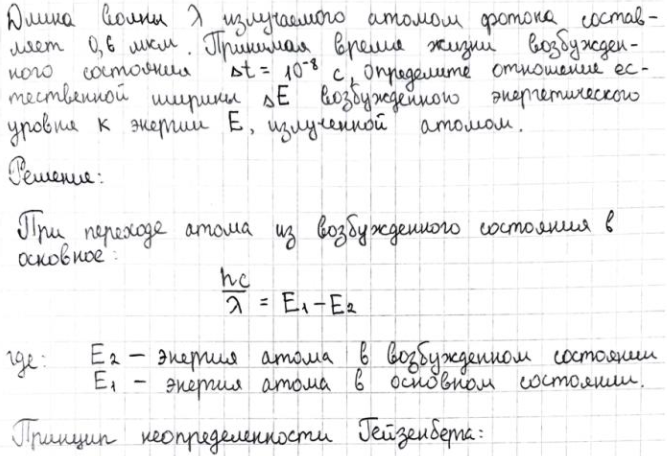 Длина волны λ излучаемого атомом фотона состав-
ляет 0,6 мкм. Принимая время жизни возбужден-
ного состояния Δt = 10⁻⁸ с, определите отношение ес-
тественной ширины ΔE возбужденного энергетического
уровня к энергии E, излученной атомом.
Решение:
При переходе атома из возбужденного состояния в
основное:
hc/λ = E₁ - E₂
где: E₂ - энергия атома в возбужденном состоянии
E₁ - энергия атома в основном состоянии.
Принцип неопределенности Гейзенберга: